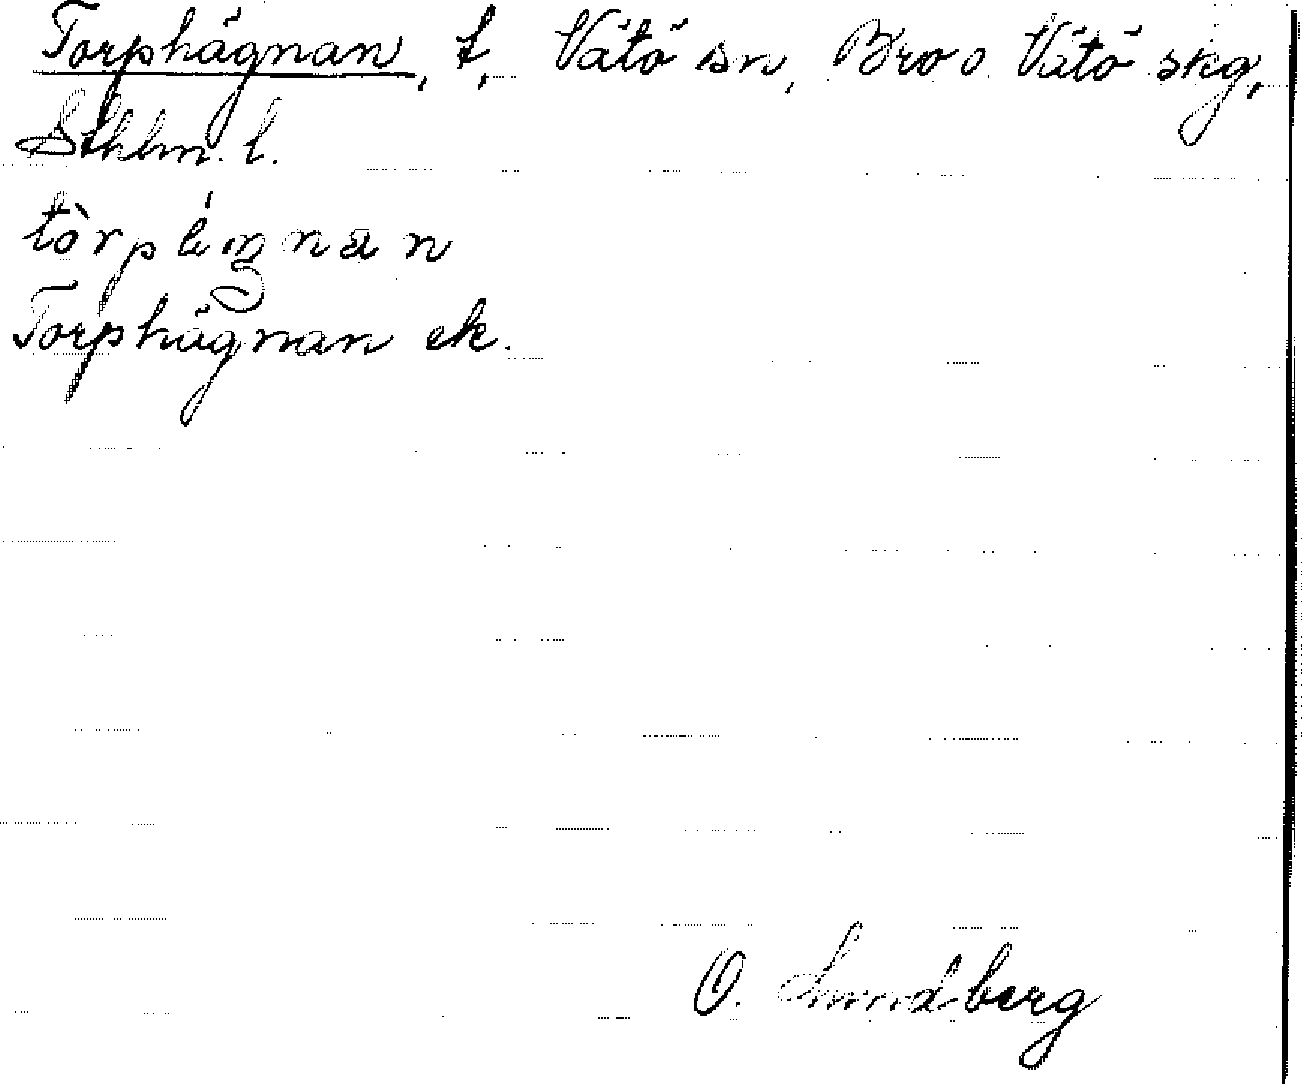 Torphägnan, t, Vätö sn, Bro o Vätö skg,
Sthlm. l.
Torphägnan ek.
O. Lundberg